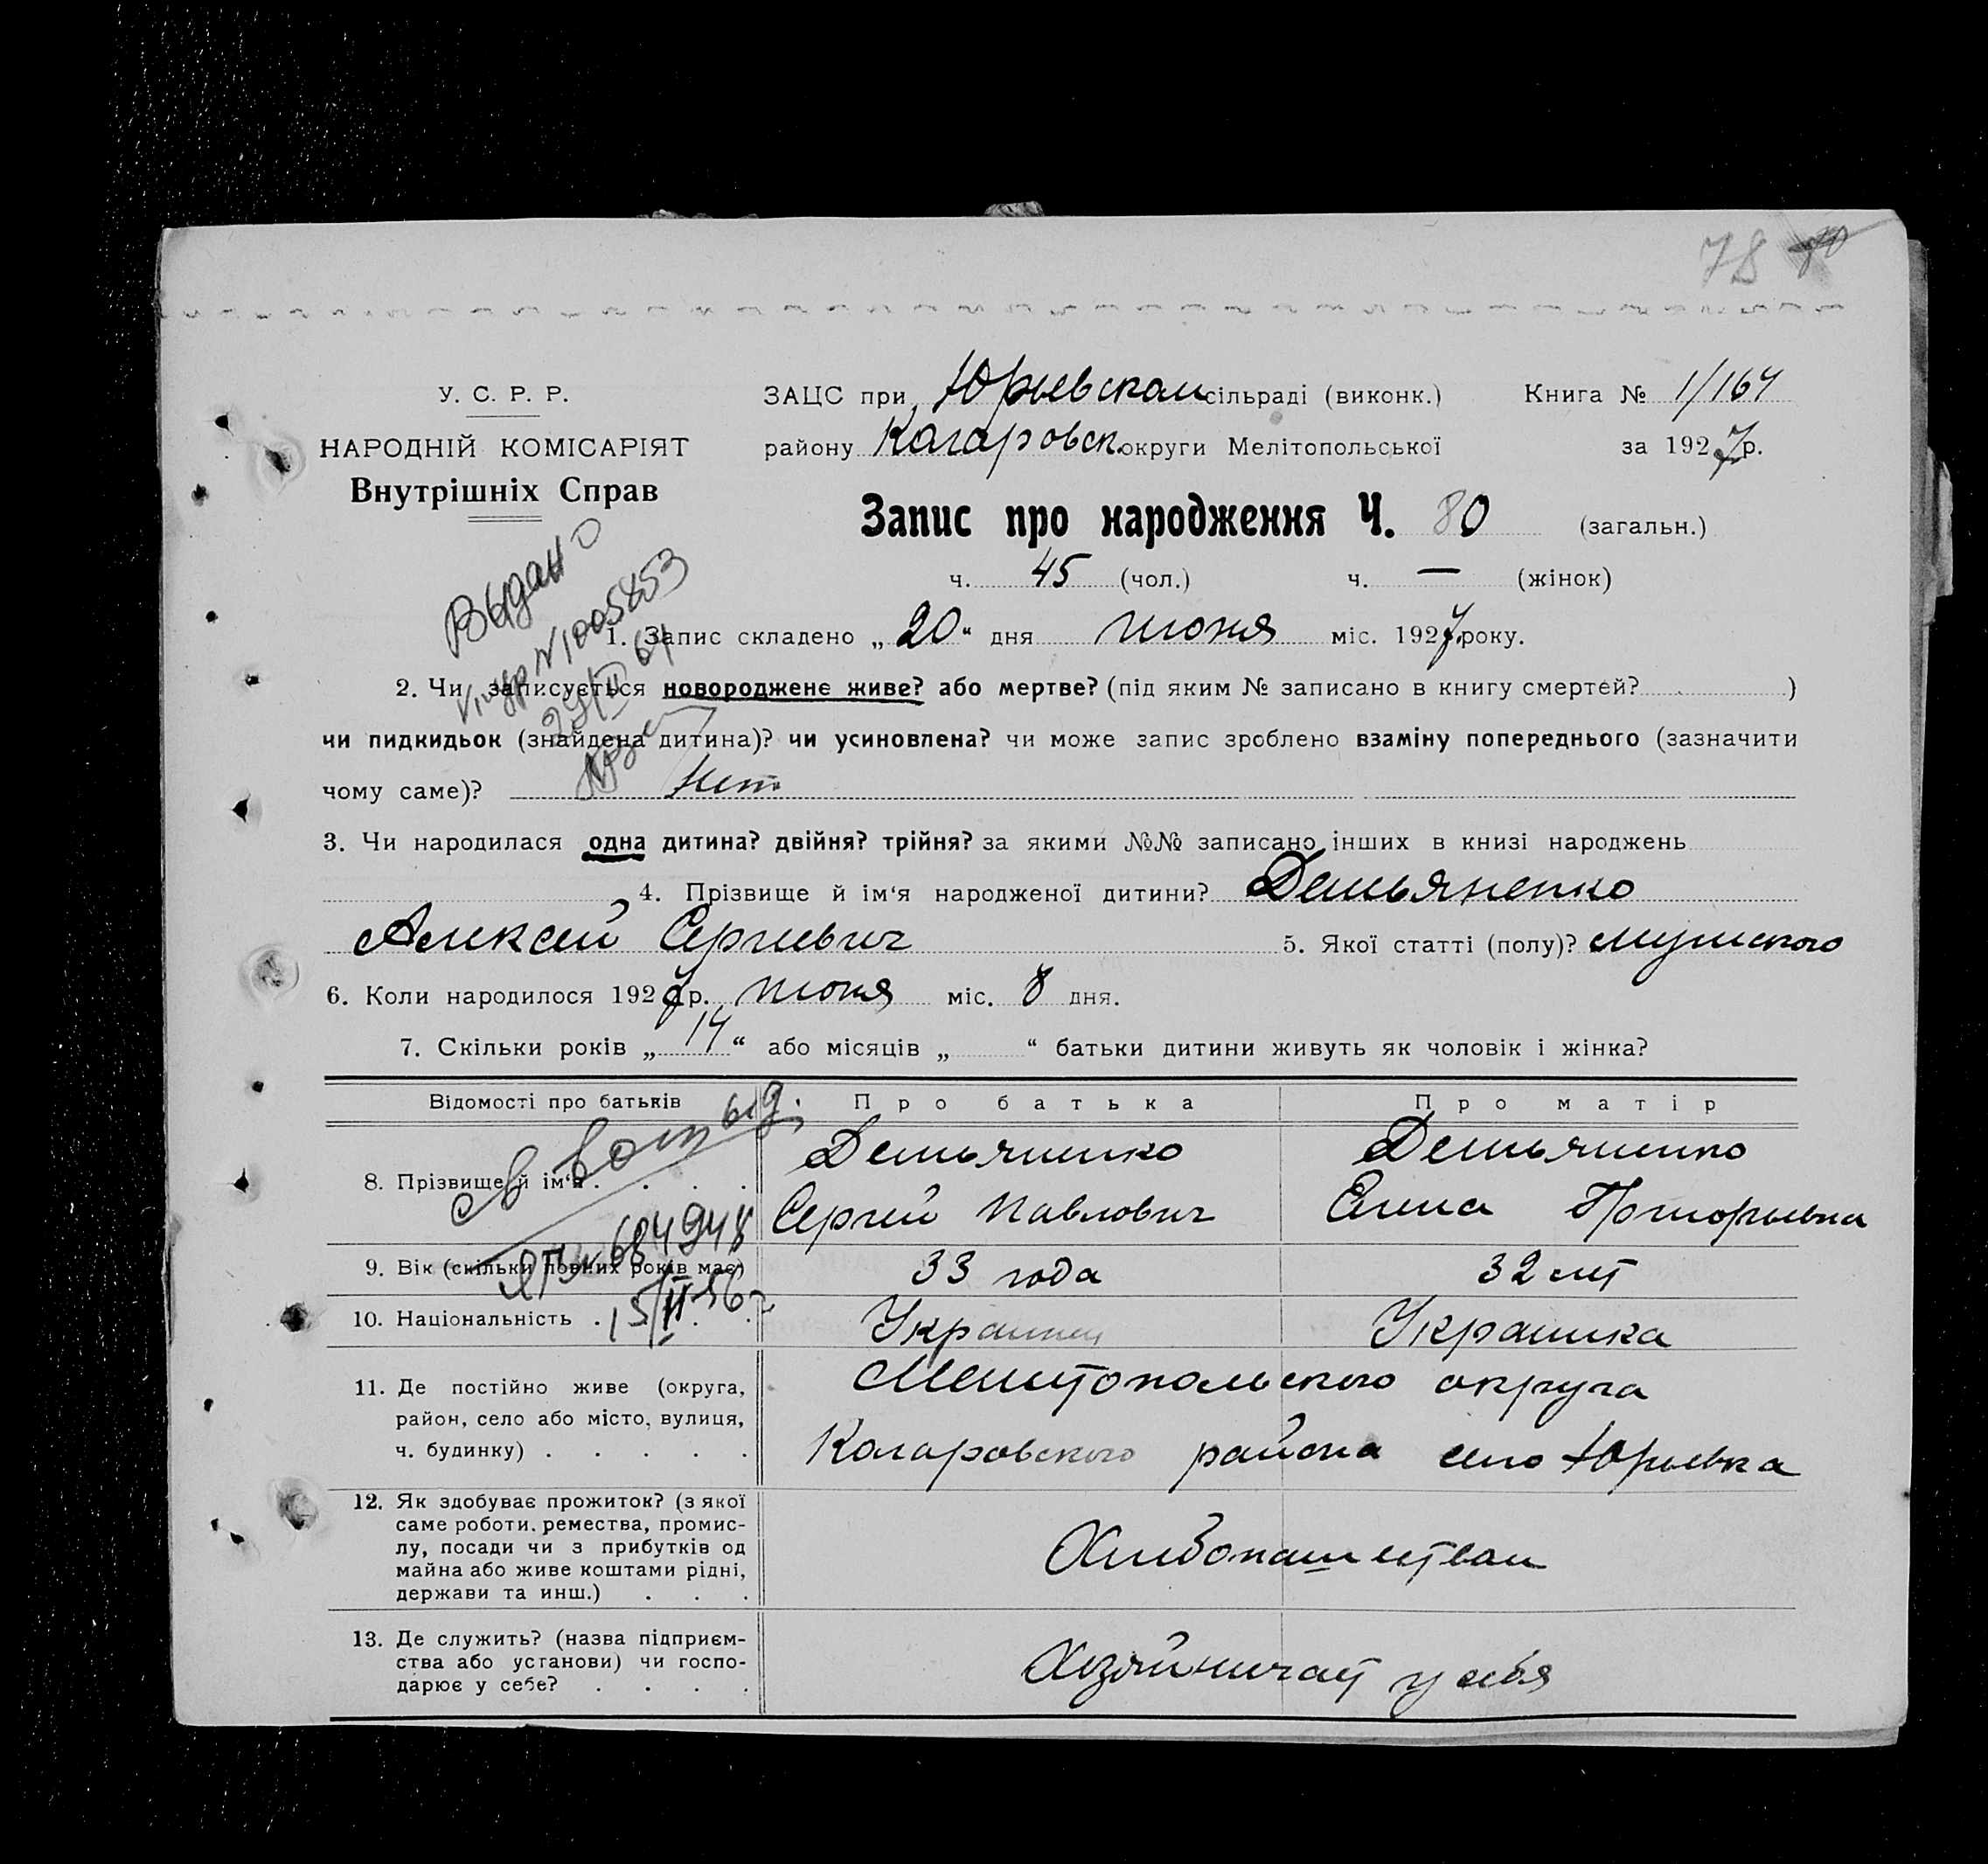 78
У. С. Р. Р.
НАРОДНІЙ КОМІСАРІЯТ
Внутрішніх Справ
ЗАЦС при Юрьевском сільраді (виконк.)
району округи Мелітопольської
Книга № 1/164
за 1927 р.
Запис про народження Ч. 80 (загальн.)
ч. 45 (чол.) ч. — (жінок)
Выдано
№ 1005853
1. Запис складено „20“ дня июня міс. 1927 року.
2. Чи записується новороджене живе? або мертве? (під яким № записано в книгу смертей? )
чи пидкидьок (знайдена дитина)? чи усиновлена? чи може запис зроблено взаміну попереднього (зазначити
чому саме)? Нет
3. Чи народилася одна дитина? двійня? трійня? за якими №№ записано інших в книзі народжень
4. Прізвище й ім‘я народженої дитини? Демьяненко
Алексей Сергиевич 5. Якої статті (полу)? мужского
6. Коли народилося 1927 р. июня міс. 8 дня.
7. Скільки років „ 14 “ або місяців „ “ батьки дитини живуть як чоловік і жінка?
Відомості про батьків Про батька Про матір
8. Прізвище й ім‘я . . . . Демьяненко Демьяненко
Сергей Павлович Григорьевна
9. Вік (скільки повних років має) 33 года 32 лет
10. Національність . . . . Украинец Украинка
11. Де постійно живе (округа,
район, село або місто, вулиця,
ч. будинку) . . . . .
Мелитопольского округа
района село Юрьевка
12. Як здобуває прожиток? (з якої
саме роботи, ремества, промис-
лу, посади чи з прибутків од
майна або живе коштами рідні,
держави та инш.) . . .
Хлебопашеством
13. Де служить? (назва підприєм-
ства або установи) чи госпо-
дарює у себе? . . . .
Хозяйничает у себя